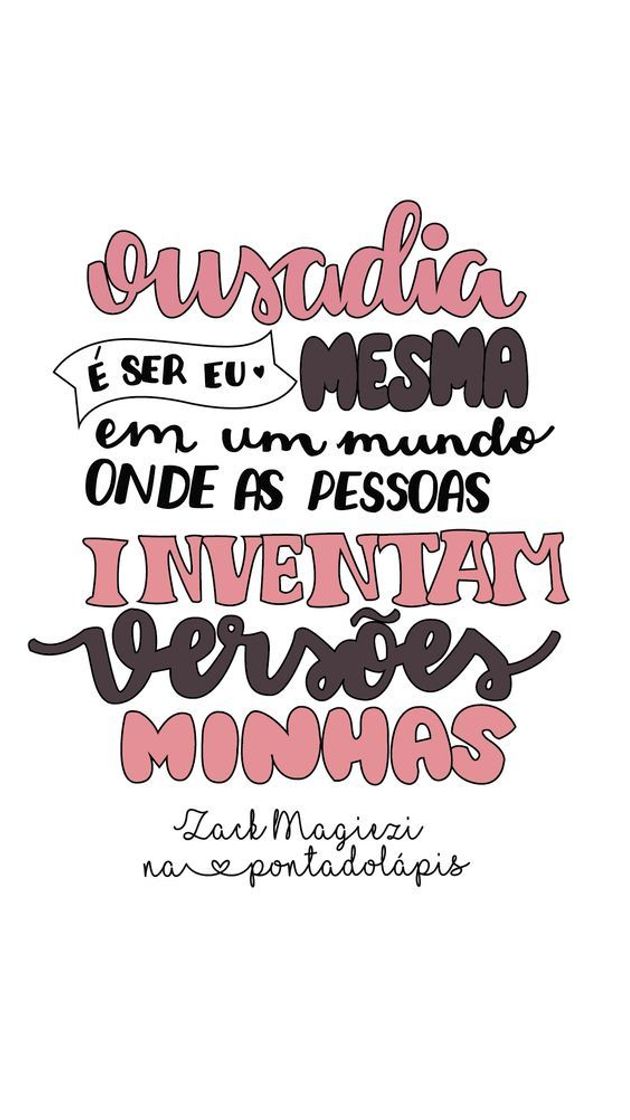 ousadia
É SER EU MESMA
em um mundo
ONDE AS PESSOAS
INVENTAM
versões
MINHAS
Zack Magiezi
na pontadolápis